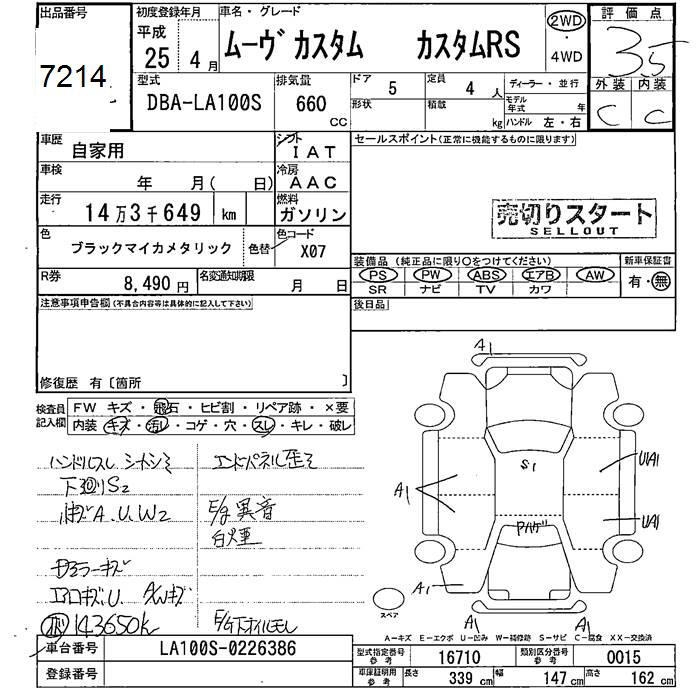 出品番号
7214
初度登録年月
平成
25年 4月
車名・グレード
ムーヴカスタム カスタムRS
2WD
・
4WD
評価点
3.5
外装 内装
C C
型式
DBA-LA100S
排気量
660
CC
ドア
5
形状
定員
4人
積載
kg
ディーラー・並行
モデル年式 年
ハンドル 左・右
車歴
自家用
シフト
IAT
車検
年 月( 日)
冷房
AAC
走行
14万3千649 km
燃料
ガソリン
色
ブラックマイカメタリック
色替
色コード
X07
R券
8,490円
名変通知期限
月 日
セールスポイント(正常に機能するものに限ります)
売切りスタート
SELLOUT
装備品(純正品に限り○をつけてください)
PS PW ABS エアB AW
SR ナビ TV カワ
新車保証書
有・無
後日品
注意事項申告欄(不具合内容等は具体的に記入して下さい)
修復歴 有〔箇所 〕
検査員記入欄
FW キズ・飛石・ヒビ割・リペア跡・×要
内装 キズ・汚レ・コゲ・穴・スレ・キレ・破レ
ハンドルスレ シナシミ
下廻りS2
A.U.W2
ドアミラーキズ
エアロキズU. A/Wキズ
143650k
エンドパネル歪ミ
E/g異音
白煙
E/g下オイルモレ
A1
S1
U1A1
A1
U1A1
Pハゲ
A1
A1
A1
スペア
A-キズ E-エクボ U-凹み W-補修跡 S-サビ C-腐食 XX-交換済
車台番号
LA100S-0226386
登録番号
型式指定番号
参考
16710
類別区分番号
参考
0015
車庫証明用
参考
長さ
339cm
幅
147cm
高さ
162cm